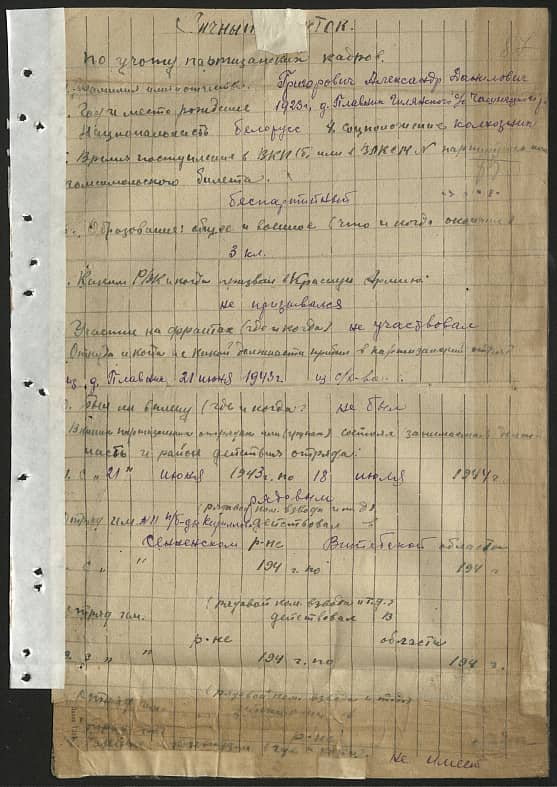 Личный листок.
по учёту партизанских кадров.
Фамилия имя отчество. Григорович Александр Данилович
Год и место рождение 1923г, д. Плавник с/с
Национальность белорус 4. соцположение колхозник
Время поступление в ВКП(б), или в ВЛКСМ N партийного или
комсомольского билета.
беспартийный
Образование: общее и военное (что и когда окончил
3 кл.
Каким РВК и когда призван в Красную Армию
не призывался
Участие на фронтах (где и когда) не участвовал
Откуда и когда и с какой должности прибыл в партизанский отряд
из д. Плавник, 21 июня 1943г. из с/х-ва.
Был ли в плену (где и когда: не был
В каких партизанских отрядах или состоял занимаемая
ность и район действия отряда:
1. С „21" июня 1943г. по 18 июля 1944г.
рядовым
(рядовой ком. взвода и т.д.)
отряд им. п/б-ды Кирилова действовал
Сенненском р-не Витебской области
С „ " 194 г. по 194 г.
(рядовой ком. взвода и т.д.)
отряд им. действовал в
р-не области
С „ " 194 г. по 194 г.
отряд им. (рядовой ком. взвода и т.д.)
р-не
не имеет